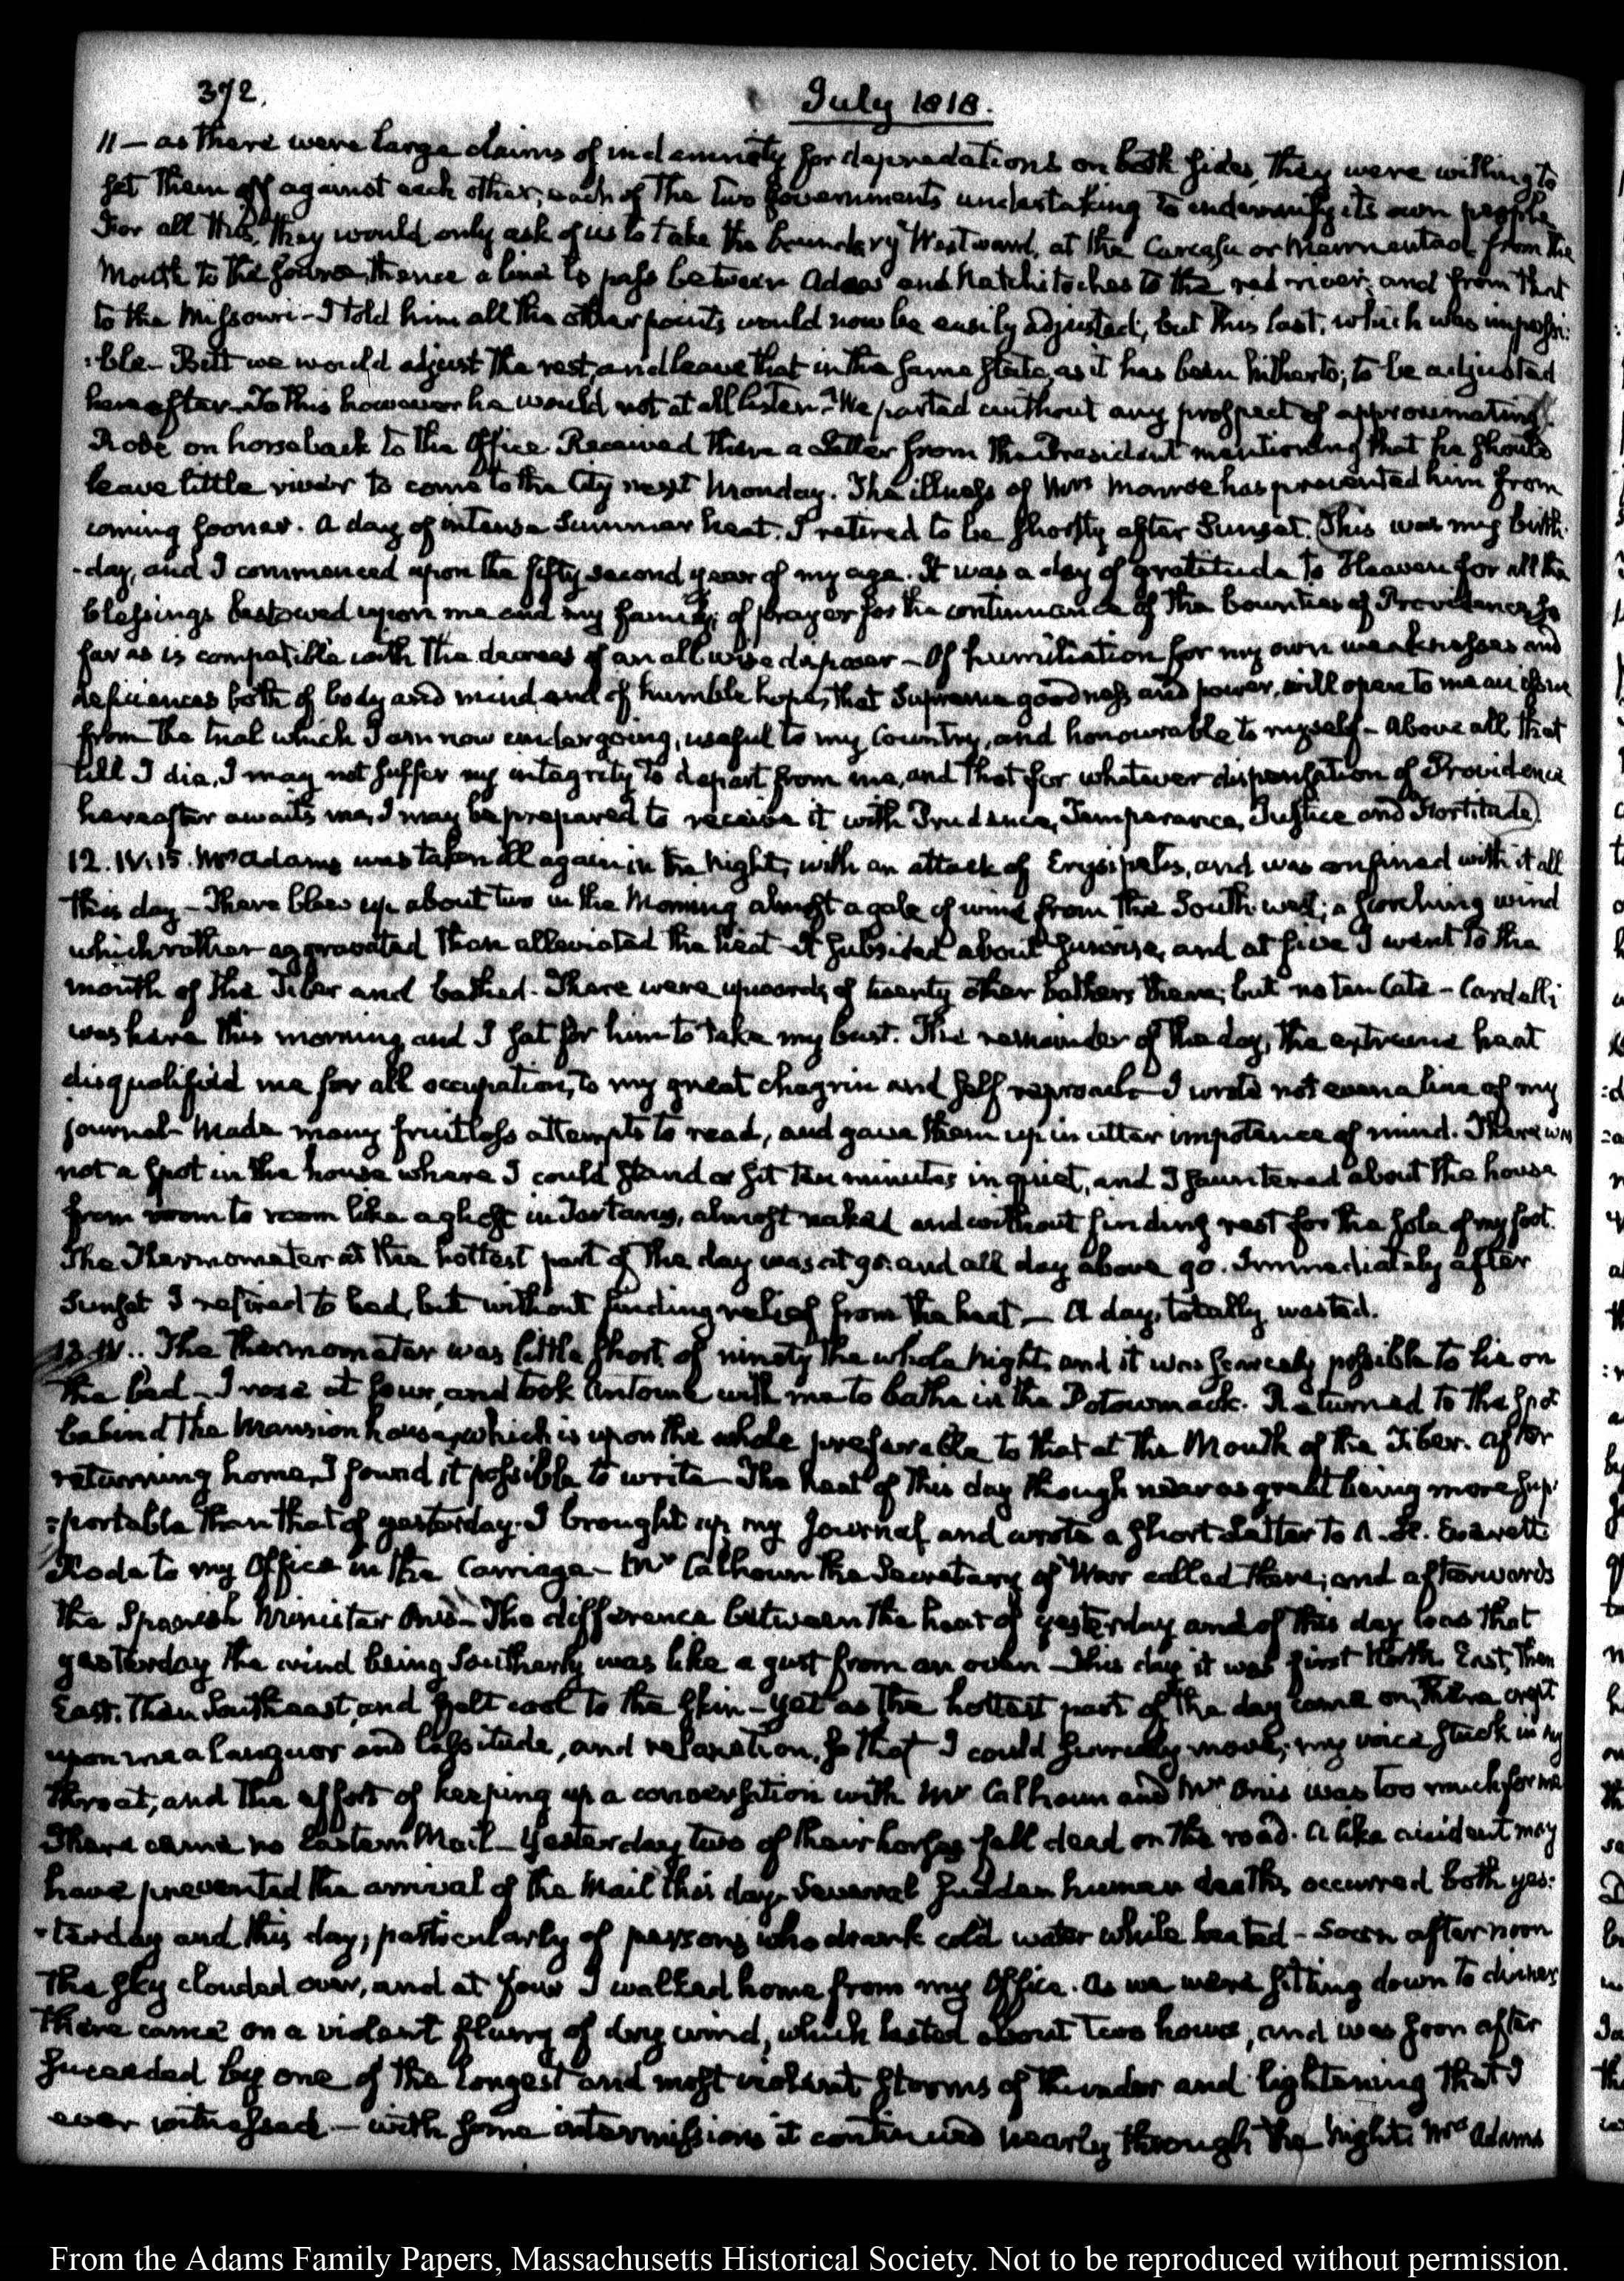 372.
July 1818.
11 — as there were large claims of indemnity for depredations on both sides, they were willing to
set them off against each other, each of the two Governments undertaking to indemnify its own people
For all this, they would only ask of us to take the boundary Westward, at the Carcasu or Mermentao from the
Mouth to the source, thence a line to pass between Adaes and Natchitoches to the red river; and from that
to the Missouri — I told him all the other points would now be easily adjusted, but this last, which was impossi:
:ble — But we would adjust the rest, and leave that in the same state, as it has been hitherto, to be adjusted
hereafter — To this however he would not at all listen — We parted without any prospect of approximating.
Rode on horseback to the Office. Received there a Letter from the President mentioning that he should
leave little river to come to the City next Monday. The illness of Mrs Monroe has prevented him from
coming sooner. A day of intense Summer heat. I retired to be shortly after Sunset. (This was my birth
-day, and I commenced upon the fifty second year of my age. It was a day of gratitude to Heaven for all the
blessings bestowed upon me and my family; of prayer for the continuance of the bounties of Providence so
far as is compatible with the decrees of an all wise disposer — Of humiliation for my own weaknesses and
deficiences both of body and mind, and of humble hope, that Supreme goodness and power, will open to me an issue
from the trial which I am now undergoing, useful to my Country, and honourable to myself — Above all that
till I die, I may not suffer my integrity to depart from me, and that for whatever dispensation of Providence
hereafter awaits me, I may be prepared to receive it with Prudence, Temperance, Justice and Fortitude)
12. IV. 15. Mrs Adams was taken ill again in the Night, with an attack of Erysipelas, and was confined with it all
this day — There blew up about two in the Morning almost a gale of wind from the South-west; a scorching wind
which rather aggravated than alleviated the heat — It subsided about sunrise, and at five I went to the
mouth of the Tiber and bathed. There were upwards of twenty other bathers there; but no ten Cate — Cardelli
was here this morning and I sat for him to take my bust. The remainder of the day, the extreme heat
disqualified me for all occupation, to my great chagrin and self reproach — I wrote not even a line of my
journal — Made many fruitless attempts to read, and gave them up in utter impotence of mind. There was
not a spot in the house where I could stand or sit ten minutes in quiet, and I sauntered about the house
from room to room like a ghost in Tartarus, almost naked and without finding rest for the sole of my foot.
The Thermometer at the hottest part of the day was at and all day above 90. Immediately after
Sunset I retired to bed, but without finding relief from the heat — A day, totally wasted.
13. IV.. The Thermometer was little short of ninety the whole Night, and it was scarcely possible to lie on
the bed — I rose at four, and took Antoine with me to bathe in the Potowmack. Returned to the spot
behind the Mansion house, which is upon the whole preferable to that at the Mouth of the Tiber. After
returning home, I found it possible to write — The heat of this day though near as great being more sup:
:portable than that of yesterday. I brought up my Journal and wrote a short Letter to A. H. Everett.
Rode to my Office in the Carriage — Mr Calhoun the Secretary of War called there; and afterwards
the Spanish Minister Onis — The difference between the heat of yesterday and of this day was that
yesterday the wind being Southerly was like a gust from an oven — This day it was first North East, then
East. Then Southeast, and felt cool to the skin — Yet as the hottest part of the day came on, there crept
upon me a languor and lassitude, and relaxation, so that I could scarcely move; my voice stuck in my
throat, and the effort of keeping up a conversation with Mr Calhoun and Mr Onis was too much for me
There came no Eastern Mail — Yesterday two of their horses fell dead on the road. A like accident may
have prevented the arrival of the Mail this day. Several sudden human deaths occurred both yes:
-terday and this day; particularly of persons who drank cold water while heated — Soon after noon
the sky clouded over, and at four I walked home from my Office. As we were sitting down to dinner
there came on a violent flurry of dry wind, which lasted about two hours, and was soon after
succeeded by one of the longest and most violent storms of thunder and lightening that I
ever witnessed — with some intermissions it continued nearly through the Night. Mrs Adams
From the Adams Family Papers, Massachusetts Historical Society. Not to be reproduced without permission.